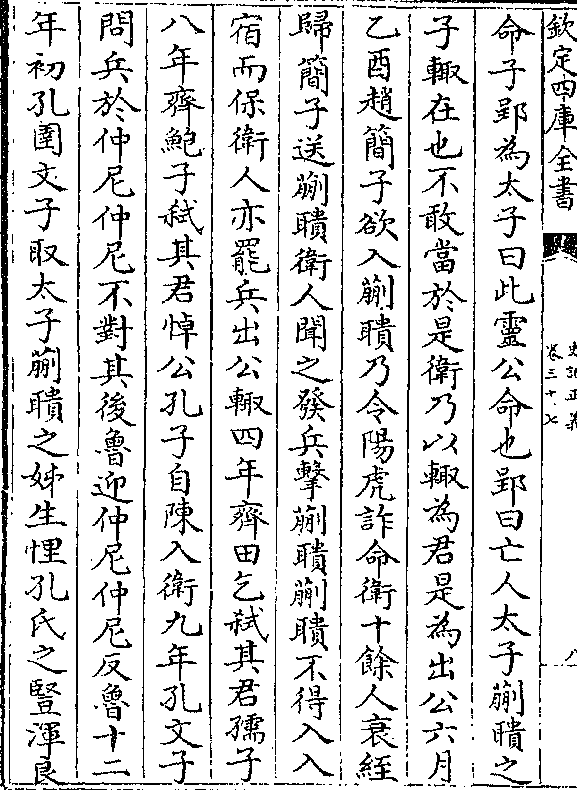 欽定四庫全書
史記正義
卷三十七
八
命子郢為太子曰此靈公命也郢曰亡人太子蒯聵之
子輒在也不敢當於是衛乃以輒為君是為出公六月
乙酉趙簡子欲入蒯聵乃令陽虎詐命衛十餘人衰絰
歸簡子送蒯聵衛人聞之發兵擊蒯聵蒯聵不得入入
宿而保衛人亦罷兵出公輒四年齊田乞弑其君孺子
八年齊鮑子弑其君悼公孔子自陳入衛九年孔文子
問兵於仲尼仲尼不對其後魯迎仲尼仲尼反魯十二
年初孔圉文子取太子蒯聵之姊生悝孔氏之豎渾良